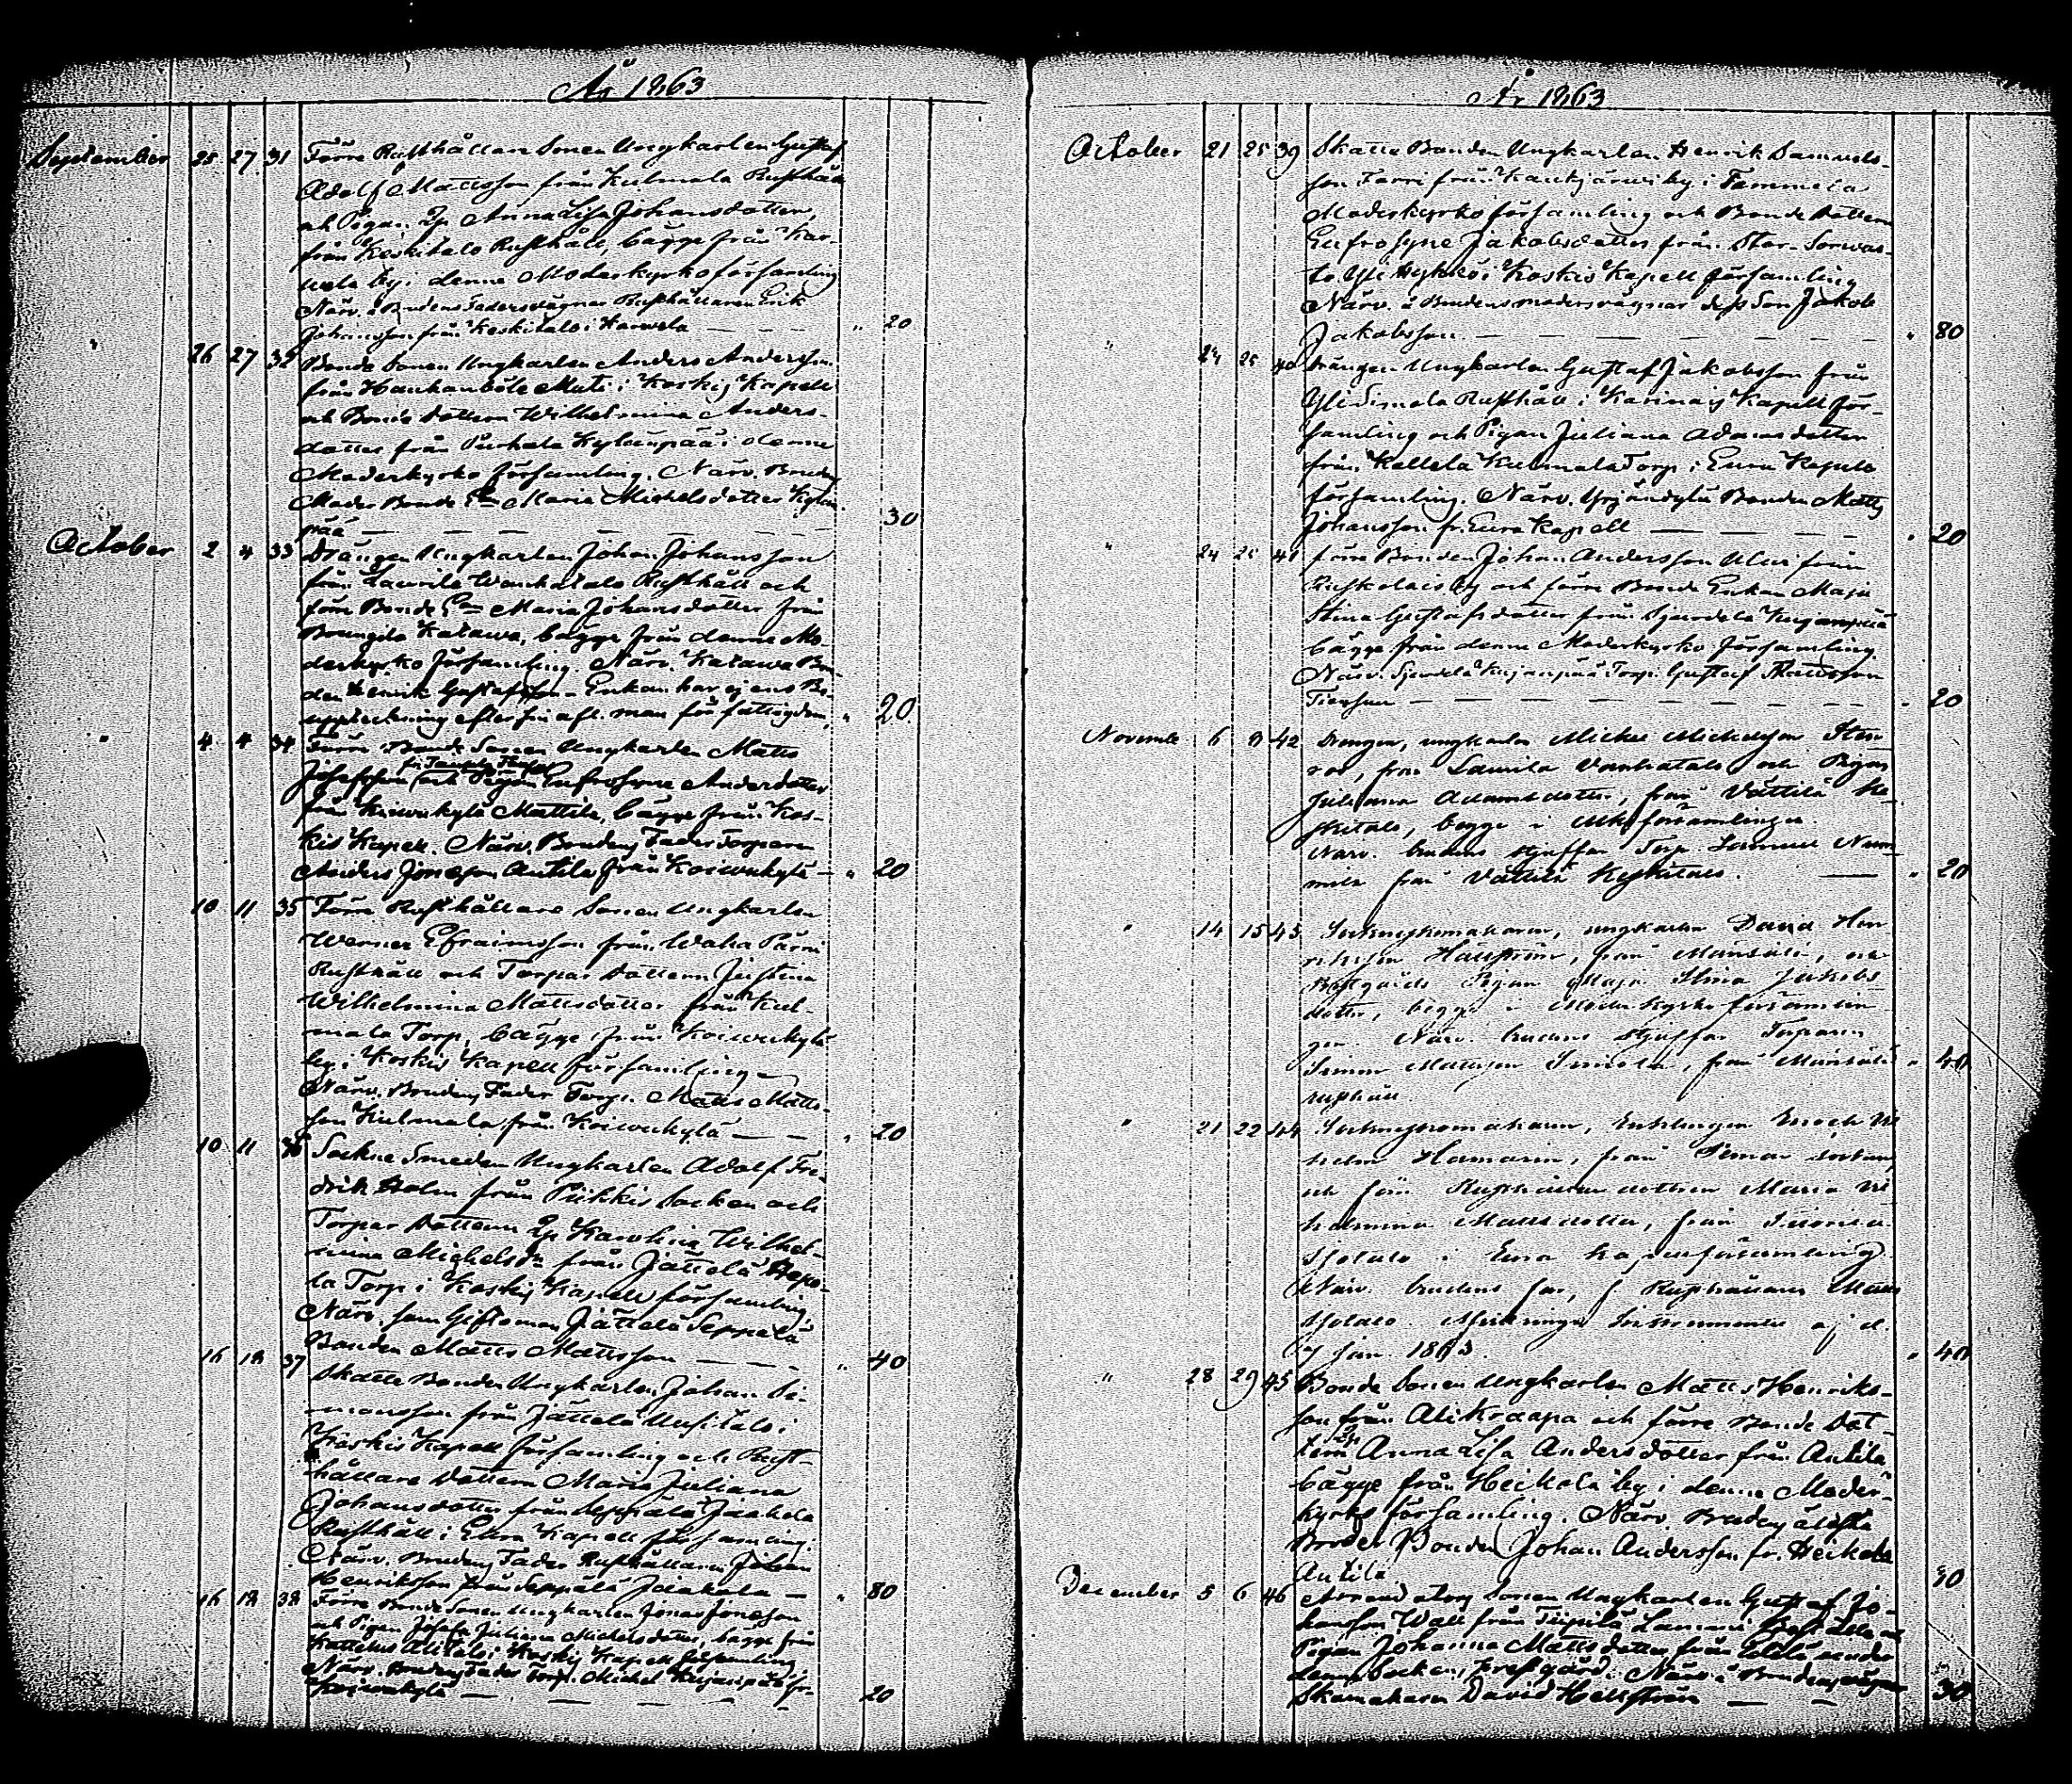 År 1863
September 25 27 31 Förre Rusthållare Sonen Ungkarlen Gustaf
Adolf Mattsson från Kulmala Rusthåll
och Pigan Anna Lisa Johansdotter,
från Keskitalo Rusthåll, bägge från Kar-
wela by i denna Moderkyrkoförsamling
Närv. å Brudens Faders vägnar Rusthållaren Erik
Johansson från Keskitalo i Karwela — — — „ 20
„ 26 27 32 Bonde Sonen Ungkarlen Anders Andersson
från Haukanböle Muti i Koskis Kapell
och Bonde dottren Wilhelmina Anders-
dotter från Purhala Kylänpää i denna
Moderkyrko församling. Närv. Brudens
Moder Bonde Maria Michelsdotter Kylän-
pää — — — — — 30
October 2 4 33 Drängen Ungkarlen Johan Johansson
från Laurila Wanhatalo Rusthåll och
förre Bonde Maria Johansdotter från
Katawa, bägge från denna Mo-
derkyrko församling. Närv. Katawa Bon-
den Henrik Gustafsson – Enkan har ej ens Bo-
uppteckning efter sin afl. man för fattigdom, „ 20
„ 4 4 34 Förre Bonde Sonen Ungkarlen Matts
Josefsson och Pigan Eufrosyne Andersdotter
från Koiwukylä Mattila, bägge från Kos-
kis Kapell. Närv. Brudens Fader Torparen
Anders Jonasson Antila från Koiwukylä — „ 20
10 11 35 Förre Rusthållare Sonen Ungkarlen
Werner Efraimsson från Waha Pärni
Rusthåll och Torpar dottren Justina
Wilhelmina Mattsdotter från Kul-
mala Torp, bägge från Koiwukylä
by i Koskis Kapell församling —
Närv. Brudens Fader Torp. Matts Matts-
son Kulmala från Koiwukylä — — „ 20
10 11 36 Sockne Smeden Ungkarlen Adolf Fre-
drik Holm från Piikkis Socken och
Torpar dottren Karolina Wilhel-
mina Michelsdr från Jättelä Seppä-
la Torp i Koskis Kapell församling,
Närv. som Giftoman Jättelä Seppälä
Bonden Matts Mattsson — — — „ 40
16 18 37 Skatte Bonden Ungkarlen Johan Si-
monsson från Jättelä Uusitalo i
Koskis Kapell församling och Rust-
hållare dottren Maria Juliana
Johansdotter från Seppälä Jaakola
Rusthåll i Eura Kapell församling.
Närv. Brudens Fader Rusthållaren Johan
Henriksson från Seppälä Jaakola — „ 80
16 18 38 Förre Bonde Sonen Ungkarlen Jonas Jonasson
och Pigan Josefa Juliana Michelsdotter, bägge från
Kattelus Alitalo i Koskis Kapell församling
Närv. Brudens Fader Torp. Michel Kujanpää fr.
Koiwukylä — — — — 20
År 1863
October 21 25 39 Skatte Bonden Ungkarlen Henrik Samuels-
son Forri från Kaukjärwi by i Tammela
Moderkyrko församling och Bonde dottren
Eufrosyne Jakobsdotter från Stor-Sorwas-
to Yli i Koskis Kapell församling
Närv. å Brudens moders vägnar dess Son Jakob
Jakobsson — — — — — — „ 80
„ 24 25 40 Drängen Ungkarlen Gustaf Jakobsson från
Yli Simola Rusthåll i Karinais Kapell för-
samling och Pigan Juliana Adamsdotter
från Kallela Kulmala Torp i Eura Kapell
församling. Närv. Bonden Matts
Johansson fr. Eura Kapell — — — — „ 20
„ 24 25 41 förre Bonden Johan Andersson från
by och förre Bonde Enkan Maja
Stina Gustafsdotter från Kujanpää
bägge från denna Moderkyrko församling
Närv. Kujanpää Torp. Gustaf
— — — — — — „ 20
November 6 8 42 Drängen, ungkarlen Michel Michelsson
från Laurila Vanhatalo och Pigan
Juliana Adamsdotter, från Vättilä Ke-
skitalo, begge i Mkoförsamlingen.
Närv. brudens styffar Torp. Samuel
från Vättilä Keskitalo. — „ 20
„ 14 15 43 ungkarlen David Hen-
riksson Hällström, från och
Pigan Maja Stina Jakobs-
dotter, begge i Moderkyrko församlin-
gen Närv. brudens styffar Torparen
Simon Mattsson Simola, från „ 40
rusthåll.
„ 21 22 44 Enklingen Enoch Wil-
helm Hamarén, från socken,
och förre Rusthållare dottren Maria Wil-
helmina Mattsdotter, från
Isotalo i Eura Kapellförsamling
Närv. brudens far, f. Rusthållaren Matts
Isotalo. af d.
7 jan. 1863. „ 40
„ 28 29 45 Bonde Sonen Ungkarlen Matts Henriks-
son från Ali Kraapa och förre Bonde dot-
tren Anna Lisa Andersdotter från Antila
bägge från Heikola by i denna Moder-
kyrko församling. Närv. Brudens äldste
Broder Bonden Johan Andersson fr. Heikola
Antila
December 5 6 46 Sonen Ungkarlen Gustaf Jo-
hansson Wall från Tiipilä
Pigan Johanna Mattsdotter från
denna Socken, Prestgård. Närv. å Brudens vägnar
Skomakaren David Hellström — — 30